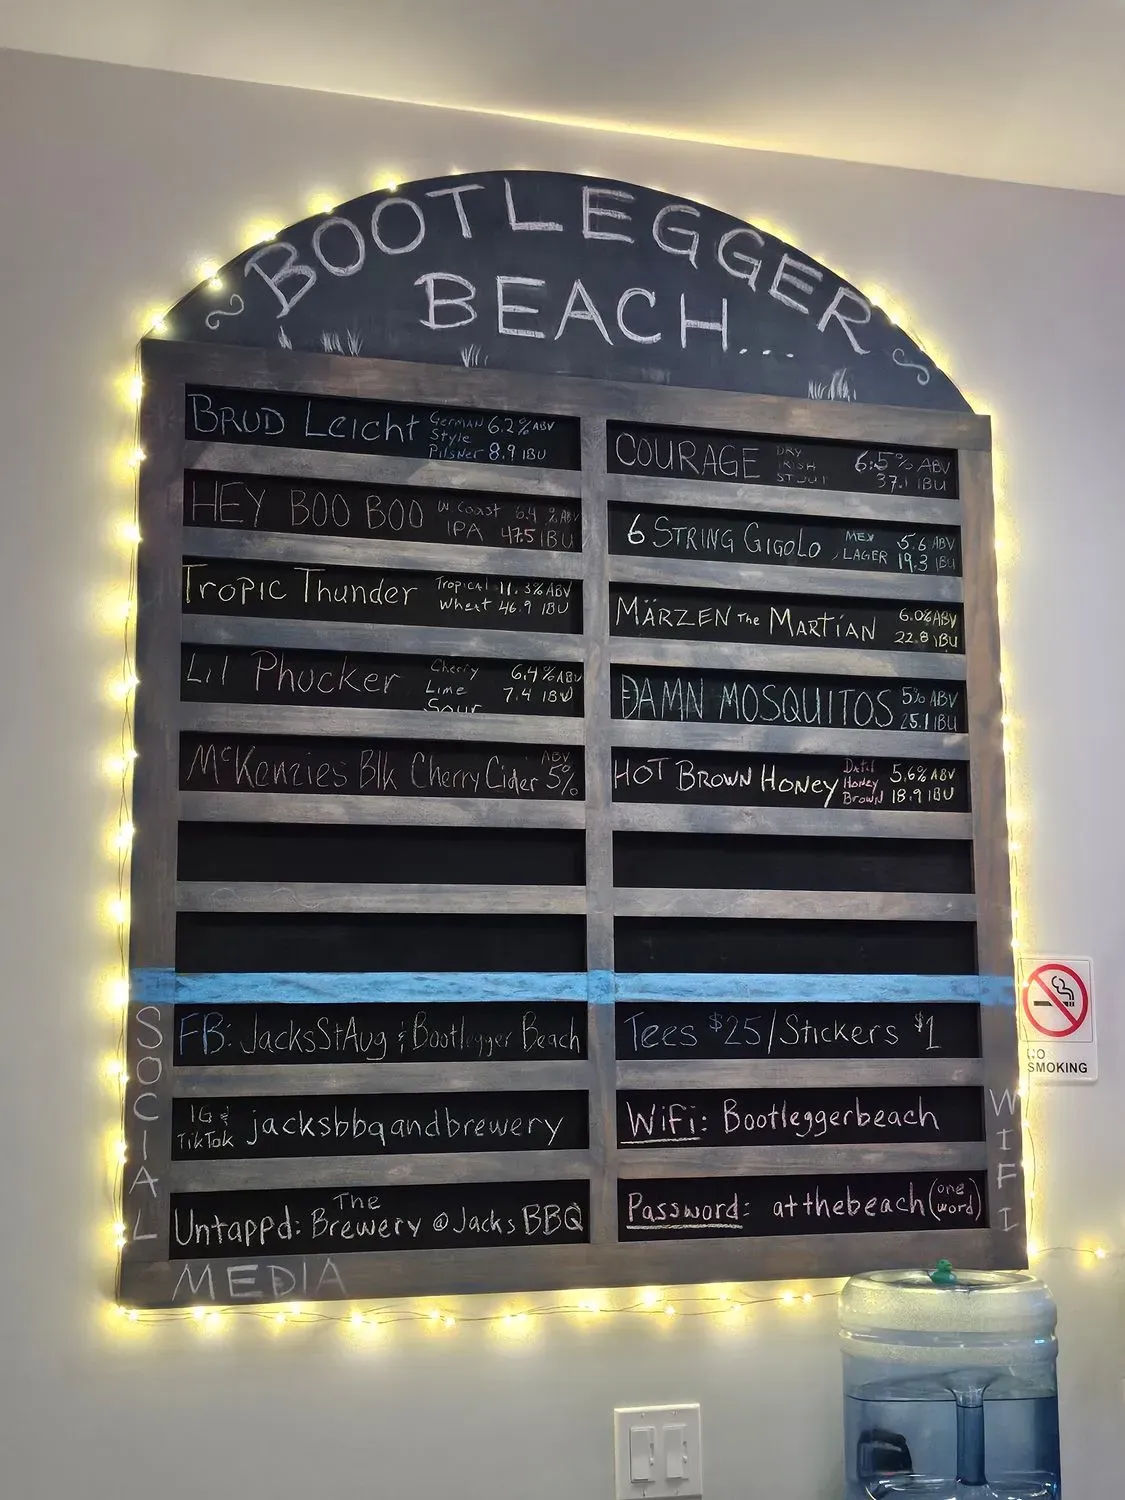 BOOTLEGGER
BEACH...
BRUD Leicht German Style Pilsner 6.2% ABV 8.9 IBU
HEY BOO BOO W Coast IPA 6.4 % ABV 47.5 IBU
Tropic Thunder Tropical Wheat 11.3% ABV 46.9 IBU
Lil Phucker Cherry Lime Sour 6.4% ABV 7.4 IBU
McKenzies Blk Cherry Cider ABV 5%
COURAGE DRY IRISH STOUT 6.5% ABV 37.1 IBU
6 STRING GIGOLO MEX LAGER 5.6 ABV 19.3 IBU
MÄRZEN THE MARTIAN 6.0% ABV 22.8 IBU
DAMN MOSQUITOS 5% ABV 25.1 IBU
HOT BROWN HONEY Honey Brown 5.6% ABV 18.9 IBU
SOCIAL
MEDIA
FB: JacksStAug & Bootlegger Beach
IG & TikTok jacksbbqandbrewery
Untappd: The Brewery @ Jacks BBQ
Tees $25/Stickers $1
WiFi: Bootleggerbeach
Password: atthebeach (one word)
WIFI
NO
SMOKING